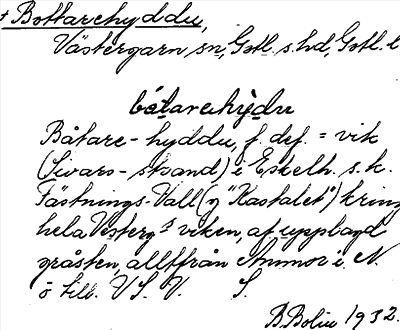 † Bottarehyddu,
Västergarn sn, Gotl. s. hd, Gotl. l
bǻtarehỳdu
Båtare-hyddu, f. def. = vik
(Sivars-strand) i Eskelh. s.k.
Fästnings-Vall (y "Kastalet") kring
hela Vesterg.s viken, af upplagd
gråsten, allt från Ammor i N.
ö till V S. V. S.
B. Bolin 1932.